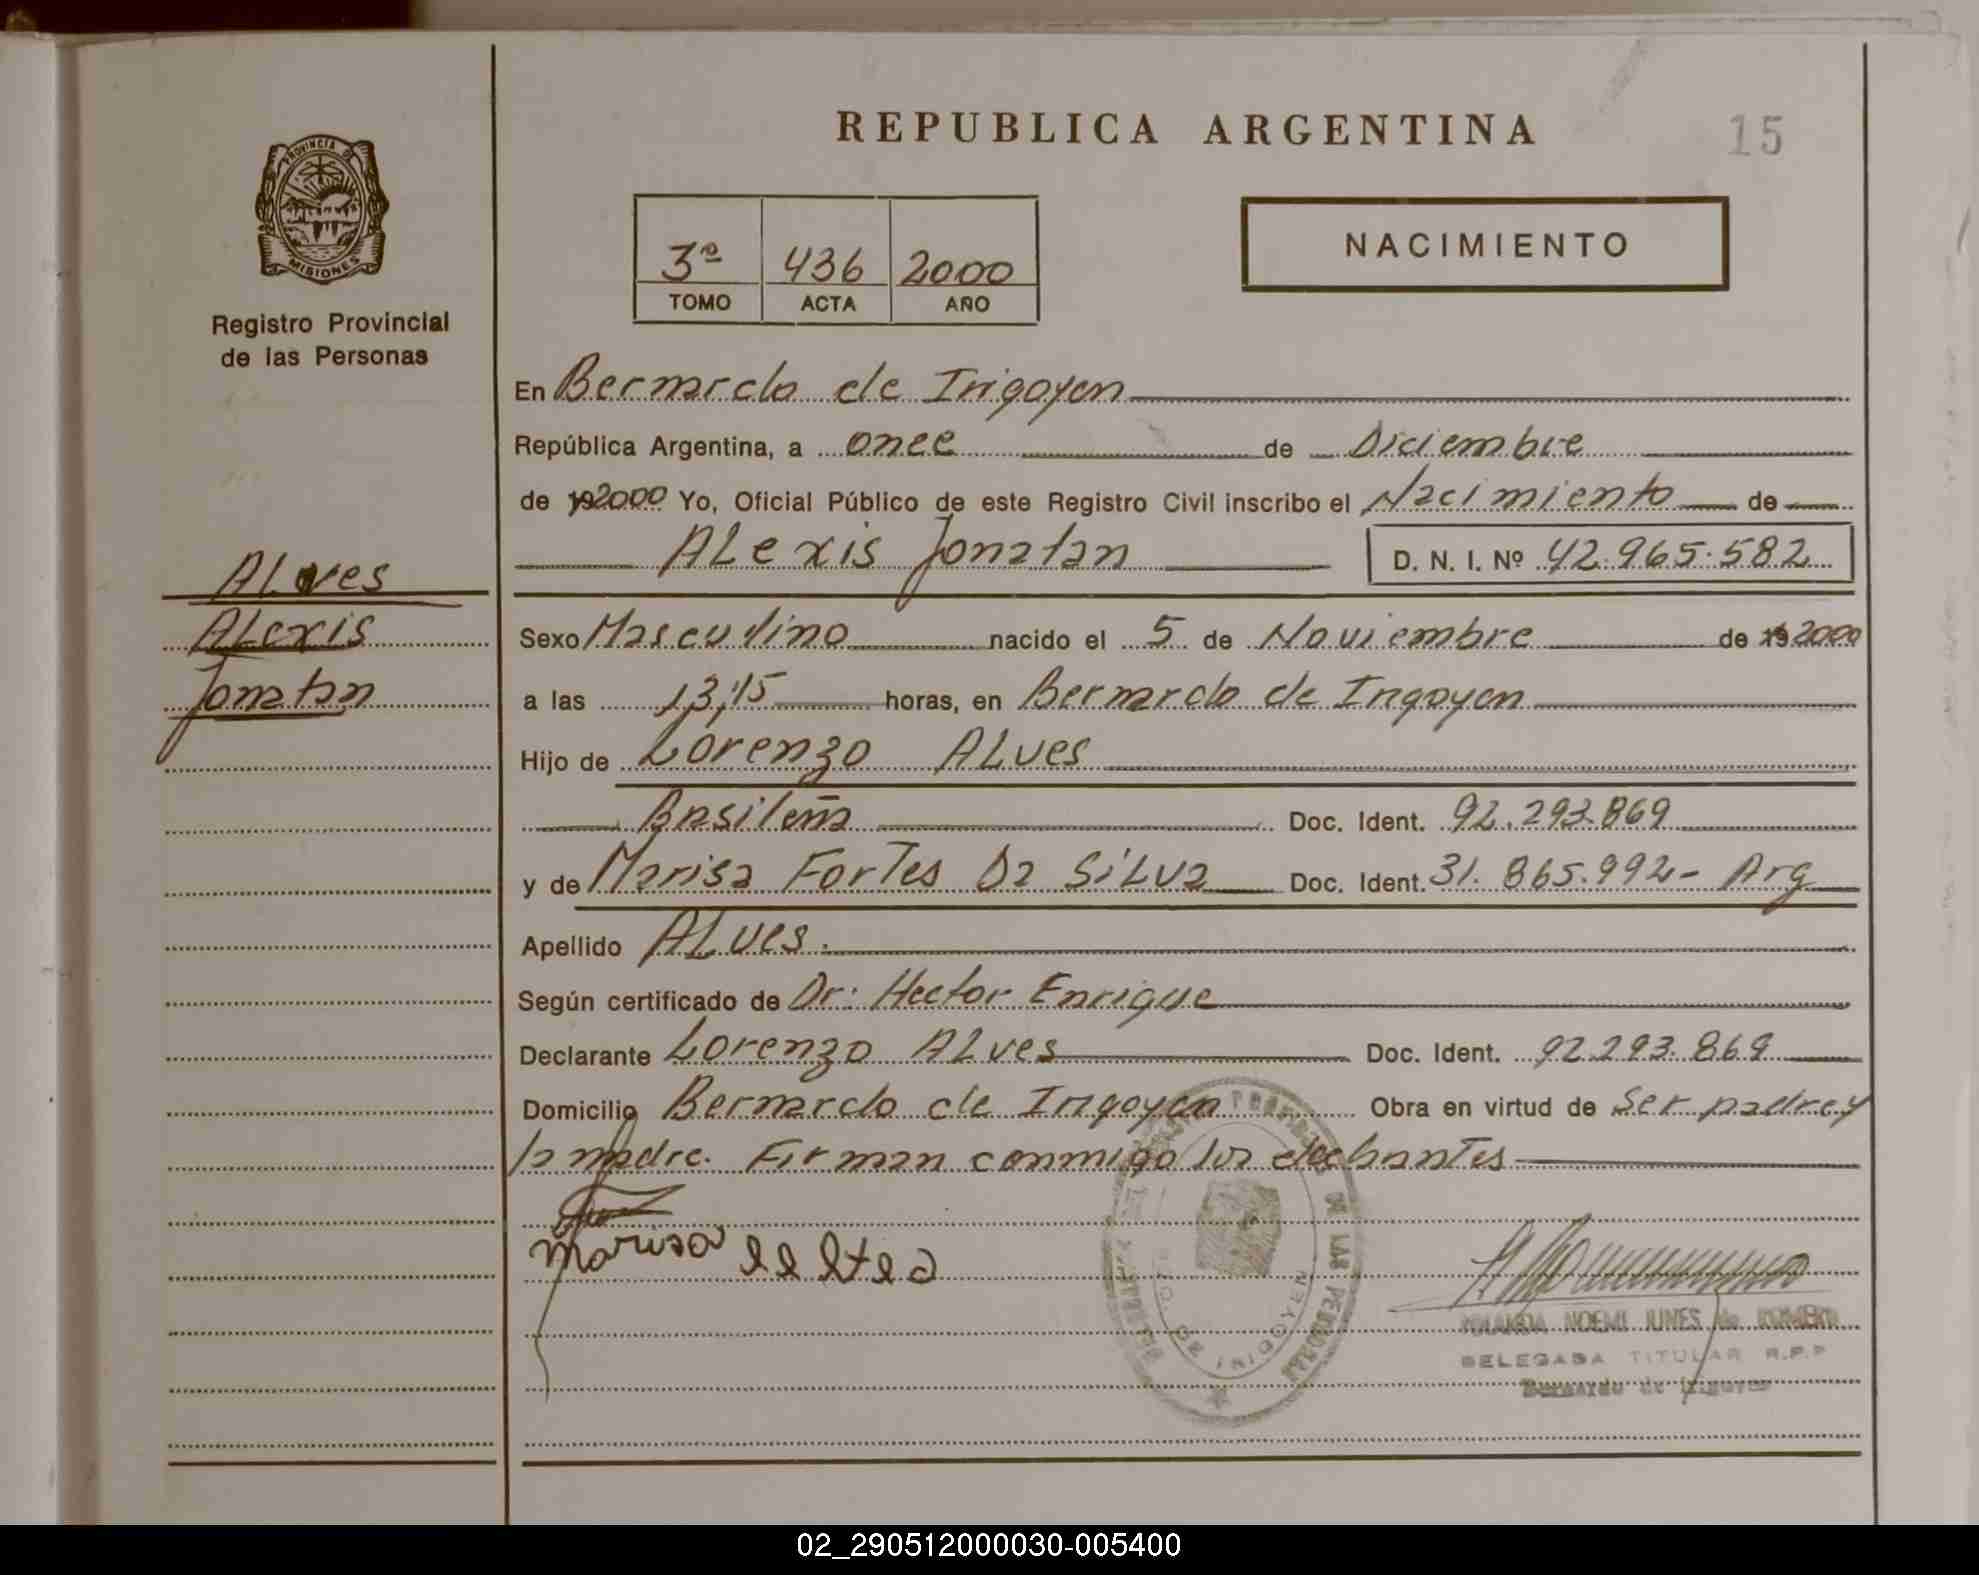 REPUBLICA ARGENTINA
15
PROVINCIA DE
MISIONES
Registro Provincial
de las Personas
3º 436 2000
TOMO ACTA AÑO
NACIMIENTO
En Bernardo de Irigoyen
República Argentina, a once de Diciembre
de 2000 Yo, Oficial Público de este Registro Civil inscribo el Nacimiento de
ALexis Jonatan D. N. I. Nº 42.965.582
ALves
ALexis
Jonatan
Sexo Masculino nacido el 5 de Noviembre de 19 2000
a las 13,15 horas, en Bernardo de Irigoyen
Hijo de Lorenzo ALves
Brasileña Doc. Ident. 92.293.869
y de Marisa Fortes Da SiLva Doc. Ident. 31.865.992- Arg
Apellido ALves.
Según certificado de Dr: Hector Enrique
Declarante Lorenzo ALves Doc. Ident. 92.293.869
Domicilio Bernardo de Irigoyen Obra en virtud de Ser padre y
la madre. Firman conmigo los declarantes
marisa
DE LAS PERSONAS
DE IRIGOYEN
YOLANDA NOEMI JUNES de ROMERO
DELEGADA TITULAR R.P.P
Bernardo de Irigoyen
02_290512000030-005400